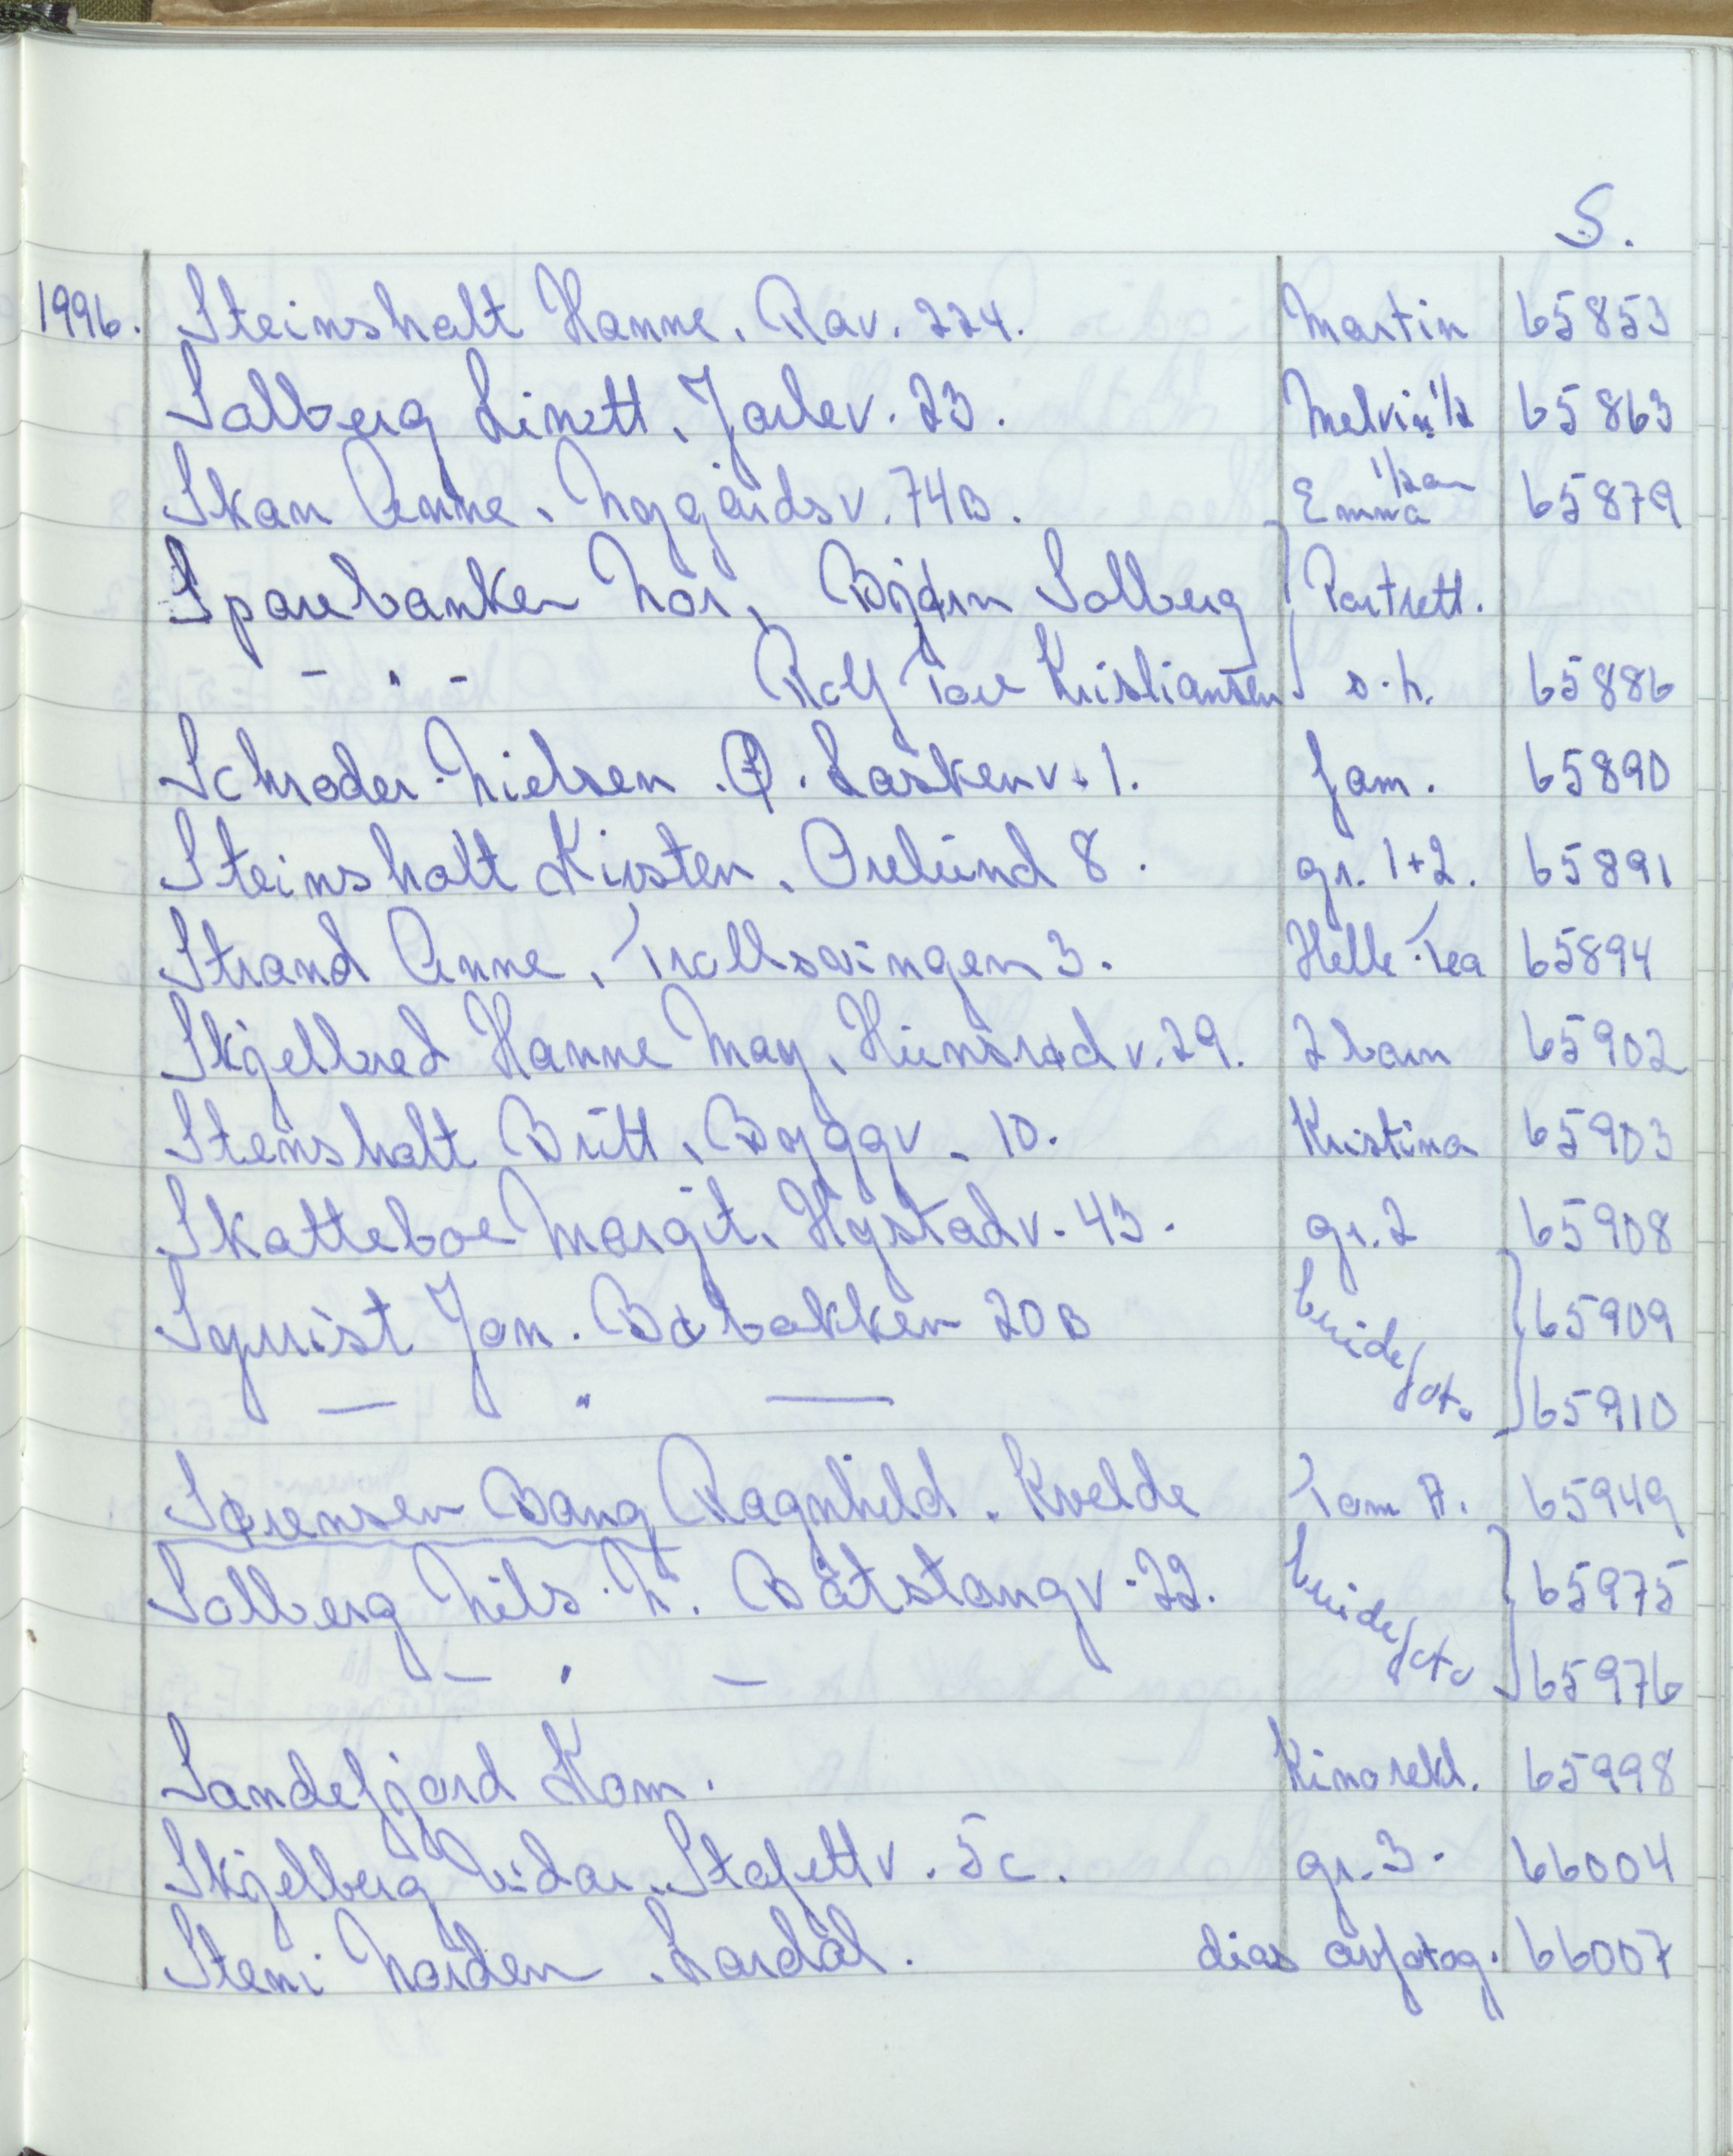 S.
1996. Steinsholt Hanne. Rav. 224. Martin 65853
Solberg Linett. Jarlev. 23. Melvin 1/2 65863
Skan Anne. Nygårdsv. 74B. Emma 1/2 an 65879
Sparebanken Nor, Bjørn Solberg } Portrett.
- " - Rolf Tore Kristiansen s.h. 65886
Schrøder-Nielsen. Ø. Laskenv. 1. fam. 65890
Steinsholt Kirsten. Orelund 8. gr. 1+2. 65891
Strand Anne. Trollsvingen 3. Helle-Tea 65894
Skjelbred Hanne May. Hunsrød v. 29. 2 barn 65902
Stenshalt Britt. Byggv. 10. Kristina 65903
Skatteboe Margit. Hystadv. 43. gr. 2 65908
Syrrist Jan. Bøbakken 20B brude/ot. } 65909
— " — 65910
Sørensen Bang Ragnhild. Kvelde Tom A. 65949
Solberg Nils. N. Båtstangv. 22. brude/ot. } 65975
- " - 65976
Sandefjord Kom. Kinorekl. 65998
Skjelberg Vidar. Stafettv. 5c. gr. 3. 66004
Steni Norden. Lardal. dias avfotog. 66007